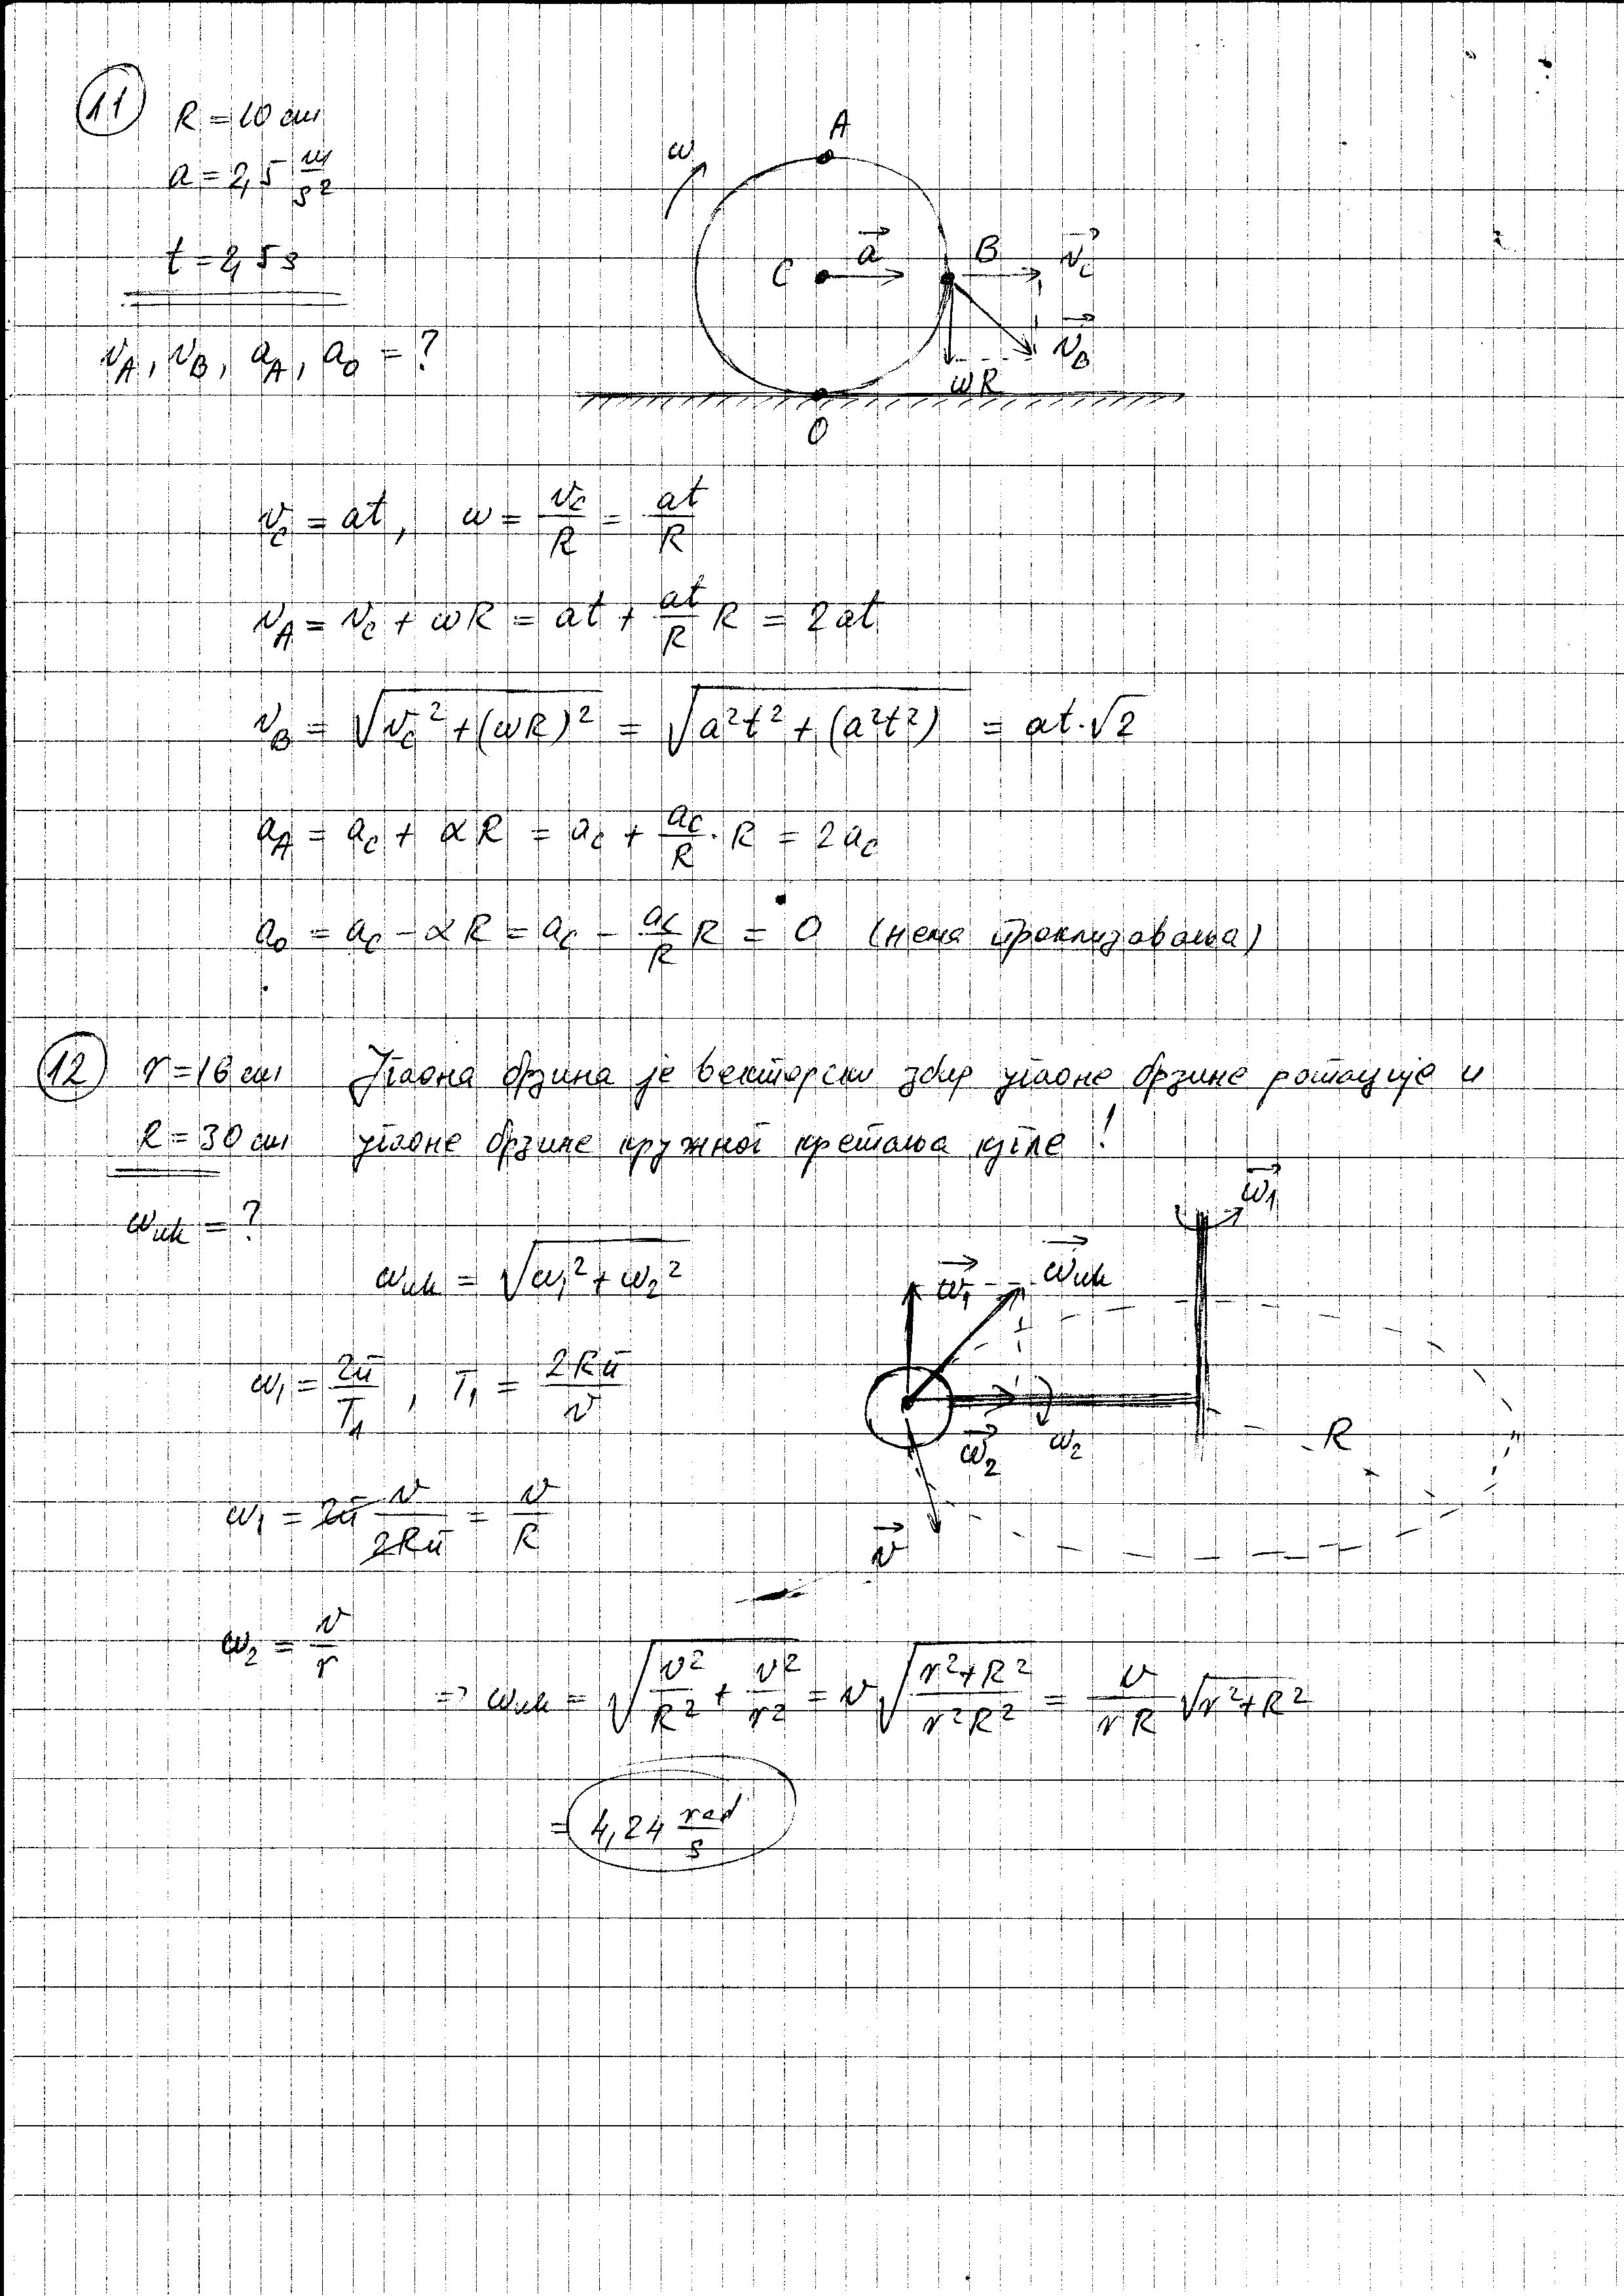 11
R = 10 cm
a = 2,5 m/s²
t = 2,5 s
v_A, v_B, a_A, a_0 = ?
A
ω
C
a⃗
B
v⃗_c
v⃗_B
ωR
O
v_c = at, ω = v_c/R = at/R
v_A = v_c + ωR = at + at/R R = 2at
v_B = √(v_c² + (ωR)²) = √(a²t² + (a²t²)) = at·√2
a_A = a_c + αR = a_c + a_c/R · R = 2a_c
a_0 = a_c − αR = a_c − a_c/R R = 0 (нема проклизовања)
12
r = 16 cm Угаона брзина је векторски збир угаоне брзине ротације и
R = 30 cm угаоне брзине кружног кретања кугле !
ω_uk = ?
ω⃗_1
ω_uk = √(ω_1² + ω_2²)
ω⃗_1
ω⃗_uk
ω_1 = 2π/T_1 , T_1 = 2Rπ/v
ω⃗_2
ω_2
R
ω_1 = 2π v/2Rπ = v/R
v⃗
ω_2 = v/r
=> ω_uk = √(v²/R² + v²/r²) = v √((r²+R²)/(r²R²)) = v/(rR) √(r²+R²)
= 4,24 rad/s